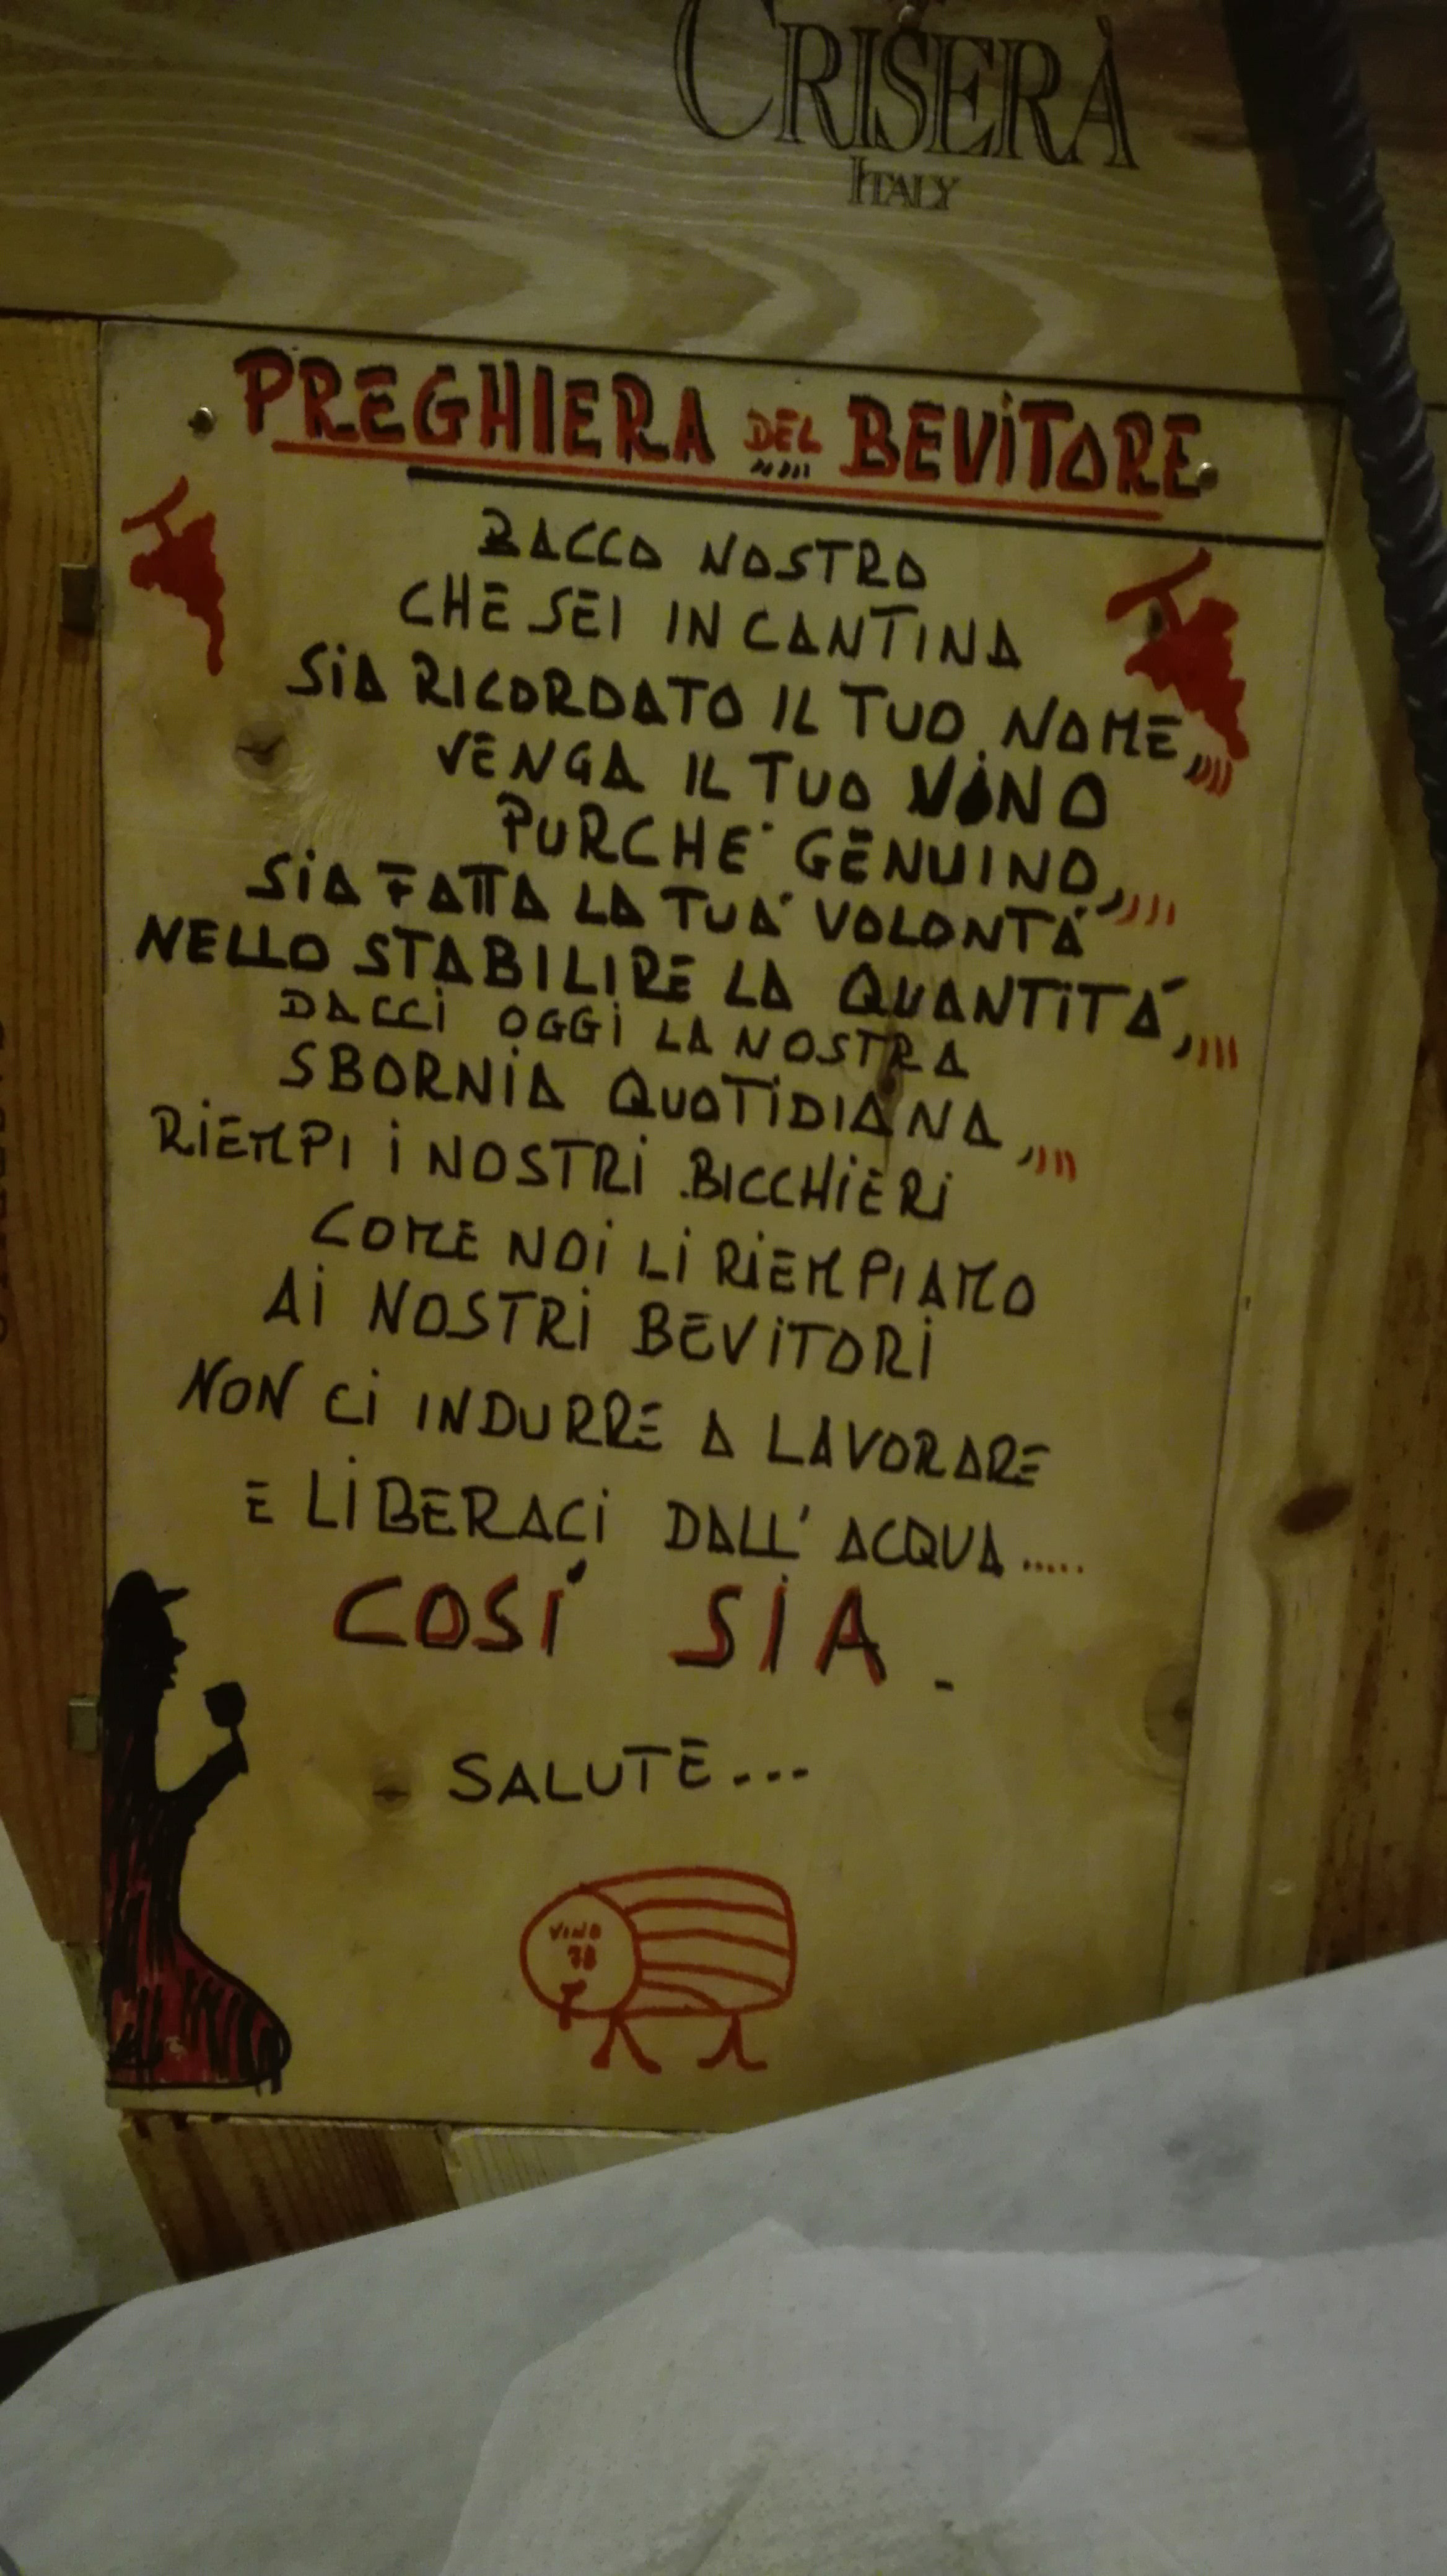 CRISERÀ
ITALY
PREGHIERA DEL BEVITORE
BACCO NOSTRO
CHE SEI IN CANTINA
SIA RICORDATO IL TUO NOME,,,,,
VENGA IL TUO VINO
PURCHE' GENUINO,,,,,
SIA FATTA LA TUA' VOLONTA'
NELLO STABILIRE LA QUANTITA',,,,,
DACCI OGGI LA NOSTRA
SBORNIA QUOTIDIANA,,,,,
RIEMPI I NOSTRI BICCHIERI
COME NOI LI RIEMPIAMO
AI NOSTRI BEVITORI
NON CI INDURRE A LAVORARE
E LIBERACI DALL'ACQUA.....
COSI' SIA.
SALUTE...
VINO